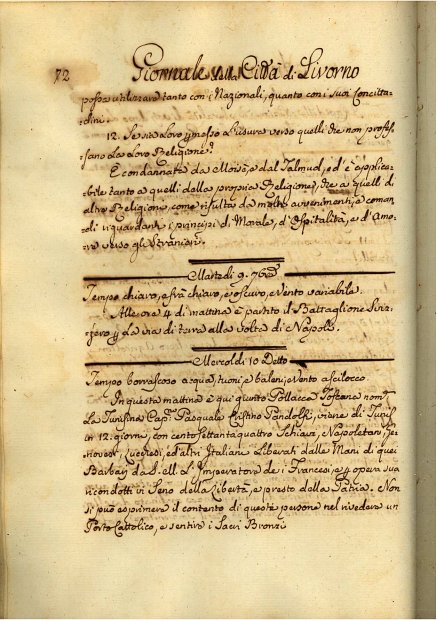 72 Giornale della Città di Livorno
possa utilizzare tanto con i Nazionali, quanto con i suoi Concitta-
dini.
12. Se sia Loro permesso l'usura verso quelli che non profes-
sano la Loro Religione?
È condannata da Moisè, e dal Talmud, ed è applica-
bile tanto a quelli della propria Religione, che a quelli di
altra Religione, come risulta da molti avvenimenti, e coman-
di riguardanti i principi di Morale, d'Ospitalità, e d'Amo-
re verso gli Stranieri.
Martedì 9.
Tempo chiaro, e frà chiaro, e oscuro, e Vento variabile.
Alle ore 4 di mattina è partito il Battaglione Sviz-
zero p. la via di terra alla volta di Napoli.
Mercoldì 10 Detto
Tempo borrascoso acqua, tuoni, e baleni, e Vento a scilocco
In questa mattina è qui giunto Pollacca Toscana nom.
La Tunisina Cap. Pasquale Cristino Pandolfi, viene di Tunis
in 12. giorni, con cento settantaquattro Schiavi, Napoletani, Ge-
novesi, Lucchesi, ed altri Italiani Liberati dalle Mani di quei
Barbari da S. M. L'Imperatore de i Francesi, e p opera sua
ricondotti in Seno della Libertà, e presto della Patria. Non
si può esprimere il contento di queste persone nel rivedere un
Porto Cattolico, e sentire i Sacri Bronzi